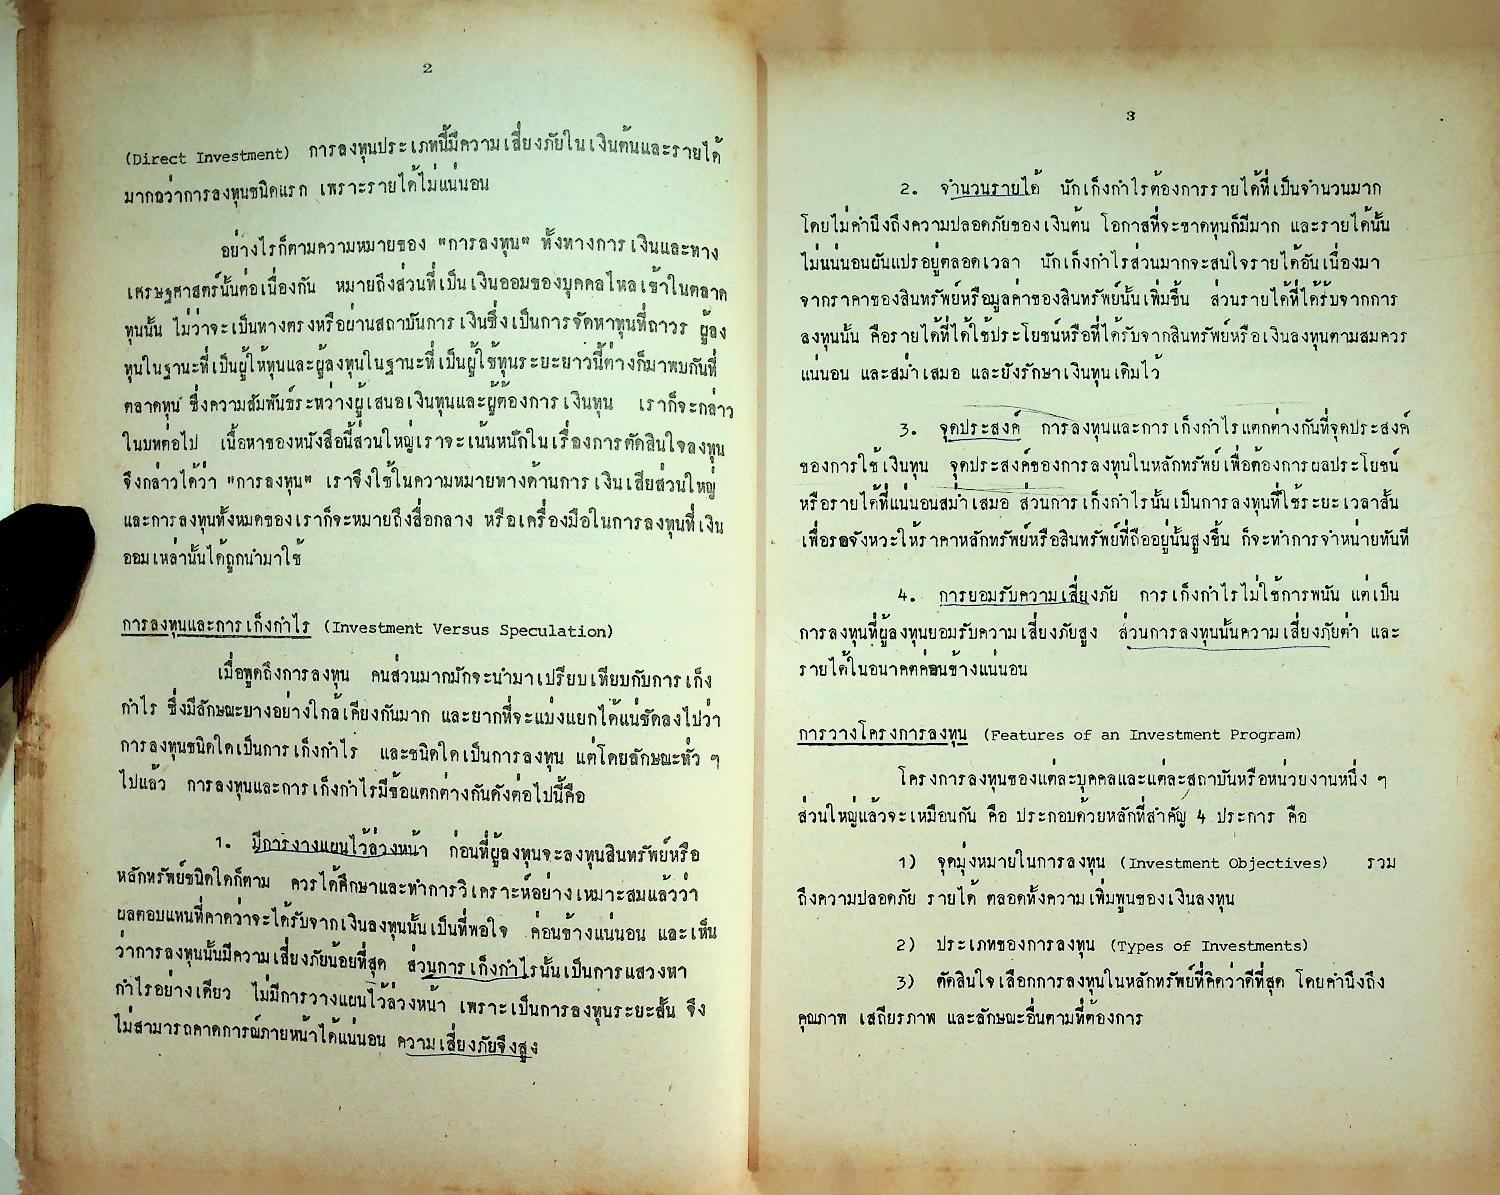 2
(Direct Investment) การลงทุนประเภทนี้มีความเสี่ยงภัยในเงินต้นและรายได้
มากกว่าการลงทุนชนิดแรก เพราะรายได้ไม่แน่นอน
อย่างไรก็ตามความหมายของ "การลงทุน" ทั้งทางการเงินและทาง
เศรษฐศาสตร์นั้นต่อเนื่องกัน หมายถึงส่วนที่เป็นเงินออมของบุคคลไหลเข้าในตลาด
ทุนนั้น ไม่ว่าจะเป็นทางตรงหรือผ่านสถาบันการเงินซึ่งเป็นการจัดหาทุนที่ถาวร ผู้ลง
ทุนในฐานะที่เป็นผู้ให้ทุนและผู้ลงทุนในฐานะที่เป็นผู้ใช้ทุนระยะยาวนี้ต่างก็มาพบกันที่
ตลาดทุน ซึ่งความสัมพันธ์ระหว่างผู้เสนอเงินทุนและผู้ต้องการเงินทุน เราก็จะกล่าว
ในบทต่อไป เนื้อหาของหนังสือนี้ส่วนใหญ่เราจะเน้นหนักในเรื่องการตัดสินใจลงทุน
จึงกล่าวได้ว่า "การลงทุน" เราจึงใช้ในความหมายทางด้านการเงินเสียส่วนใหญ่
และการลงทุนทั้งหมดของเราก็จะหมายถึงสื่อกลาง หรือเครื่องมือในการลงทุนที่เงิน
ออมเหล่านั้นได้ถูกนำมาใช้
การลงทุนและการเก็งกำไร (Investment Versus Speculation)
เมื่อพูดถึงการลงทุน คนส่วนมากมักจะนำมาเปรียบเทียบกับการเก็ง
กำไร ซึ่งมีลักษณะบางอย่างใกล้เคียงกันมาก และยากที่จะแบ่งแยกได้แน่ชัดลงไปว่า
การลงทุนชนิดใดเป็นการเก็งกำไร และชนิดใดเป็นการลงทุน แต่โดยลักษณะทั่ว ๆ
ไปแล้ว การลงทุนและการเก็งกำไรมีข้อแตกต่างกันดังต่อไปนี้คือ
1. มีการวางแผนไว้ล่วงหน้า ก่อนที่ผู้ลงทุนจะลงทุนสินทรัพย์หรือ
หลักทรัพย์ชนิดใดก็ตาม ควรได้ศึกษาและทำการวิเคราะห์อย่างเหมาะสมแล้วว่า
ผลตอบแทนที่คาดว่าจะได้รับจากเงินลงทุนนั้นเป็นที่พอใจ ค่อนข้างแน่นอน และเห็น
ว่าการลงทุนนั้นมีความเสี่ยงภัยน้อยที่สุด ส่วนการเก็งกำไรนั้นเป็นการแสวงหา
กำไรอย่างเดียว ไม่มีการวางแผนไว้ล่วงหน้า เพราะเป็นการลงทุนระยะสั้น จึง
ไม่สามารถคาดการณ์ภายหน้าได้แน่นอน ความเสี่ยงภัยจึงสูง
3
2. จำนวนรายได้ นักเก็งกำไรต้องการรายได้ที่เป็นจำนวนมาก
โดยไม่คำนึงถึงความปลอดภัยของเงินต้น โอกาสที่จะขาดทุนก็มีมาก และรายได้นั้น
ไม่แน่นอนผันแปรอยู่ตลอดเวลา นักเก็งกำไรส่วนมากจะสนใจรายได้อันเนื่องมา
จากราคาของสินทรัพย์หรือมูลค่าของสินทรัพย์นั้นเพิ่มขึ้น ส่วนรายได้ที่ได้รับจากการ
ลงทุนนั้น คือรายได้ที่ได้ใช้ประโยชน์หรือที่ได้รับจากสินทรัพย์หรือเงินลงทุนตามสมควร
แน่นอน และสม่ำเสมอ และยังรักษาเงินทุนเดิมไว้
3. จุดประสงค์ การลงทุนและการเก็งกำไรแตกต่างกันที่จุดประสงค์
ของการใช้เงินทุน จุดประสงค์ของการลงทุนในหลักทรัพย์เพื่อต้องการผลประโยชน์
หรือรายได้ที่แน่นอนสม่ำเสมอ ส่วนการเก็งกำไรนั้นเป็นการลงทุนที่ใช้ระยะเวลาสั้น
เพื่อรอจังหวะให้ราคาหลักทรัพย์หรือสินทรัพย์ที่ถืออยู่นั้นสูงขึ้น ก็จะทำการจำหน่ายทันที
4. การยอมรับความเสี่ยงภัย การเก็งกำไรไม่ใช้การพนัน แต่เป็น
การลงทุนที่ผู้ลงทุนยอมรับความเสี่ยงภัยสูง ส่วนการลงทุนนั้นความเสี่ยงภัยต่ำ และ
รายได้ในอนาคตค่อนข้างแน่นอน
การวางโครงการลงทุน (Features of an Investment Program)
โครงการลงทุนของแต่ละบุคคลและแต่ละสถาบันหรือหน่วยงานหนึ่ง ๆ
ส่วนใหญ่แล้วจะเหมือนกัน คือ ประกอบด้วยหลักที่สำคัญ 4 ประการ คือ
1) จุดมุ่งหมายในการลงทุน (Investment Objectives) รวม
ถึงความปลอดภัย รายได้ ตลอดทั้งความเพิ่มพูนของเงินลงทุน
2) ประเภทของการลงทุน (Types of Investments)
3) ตัดสินใจเลือกการลงทุนในหลักทรัพย์ที่คิดว่าดีที่สุด โดยคำนึงถึง
คุณภาพ เสถียรภาพ และลักษณะอื่นตามที่ต้องการ